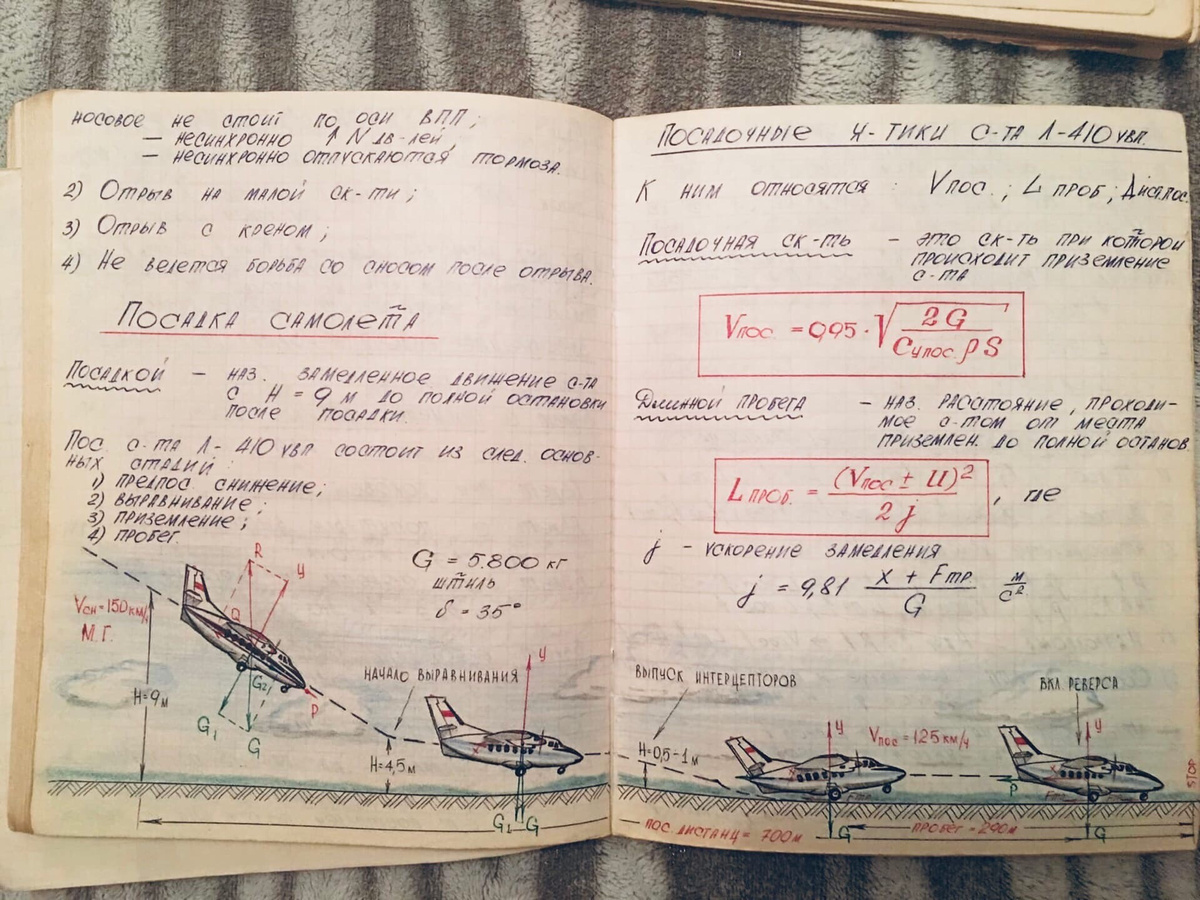 носовое не стоит по оси ВПП;
— несинхронно ↑ N дв-лей,
— несинхронно отпускаются тормоза.
2) Отрыв на малой ск-ти;
3) Отрыв с креном;
4) Не ведется борьба со сносом после отрыва.
Посадка самолета
Посадкой — наз. замедленное движение с-та
с H = 9 м до полной остановки
после посадки.
Пос. с-та Л-410 увп состоит из след. основ-
ных стадий:
1) предпос снижение;
2) выравнивание;
3) приземление;
4) пробег.
G = 5.800 кг
штиль
δ = 35°
Vсн=150 км/ч
М.Г.
R
У
Q
G2
P
G1
G
H=9м
начало выравнивания
H=4,5м
У
x
G2 G
Посадочные х-тики с-та Л-410 увп.
К ним относятся: Vпос.; L проб; Дист.пос.
Посадочная ск-ть — это ск-ть при которой
происходит приземление
с-та
Vпос. = 0,95 · √ 2G / Cупос. ρ S
Длинной пробега — наз. расстояние, проходи-
мое с-том от места
приземлен. до полной останов.
L проб. = (Vпос ± U)² / 2 j , где
j — ускорение замедления
j = 9,81 x + Fтр. / G м/с²
выпуск интерцепторов
H=0,5-1м
У
Vпос =125 км/ч
x
Fтр
G
вкл реверса
У
P
x
Fтр
G
STOP
пос дистанц = 700м
пробег = 290м